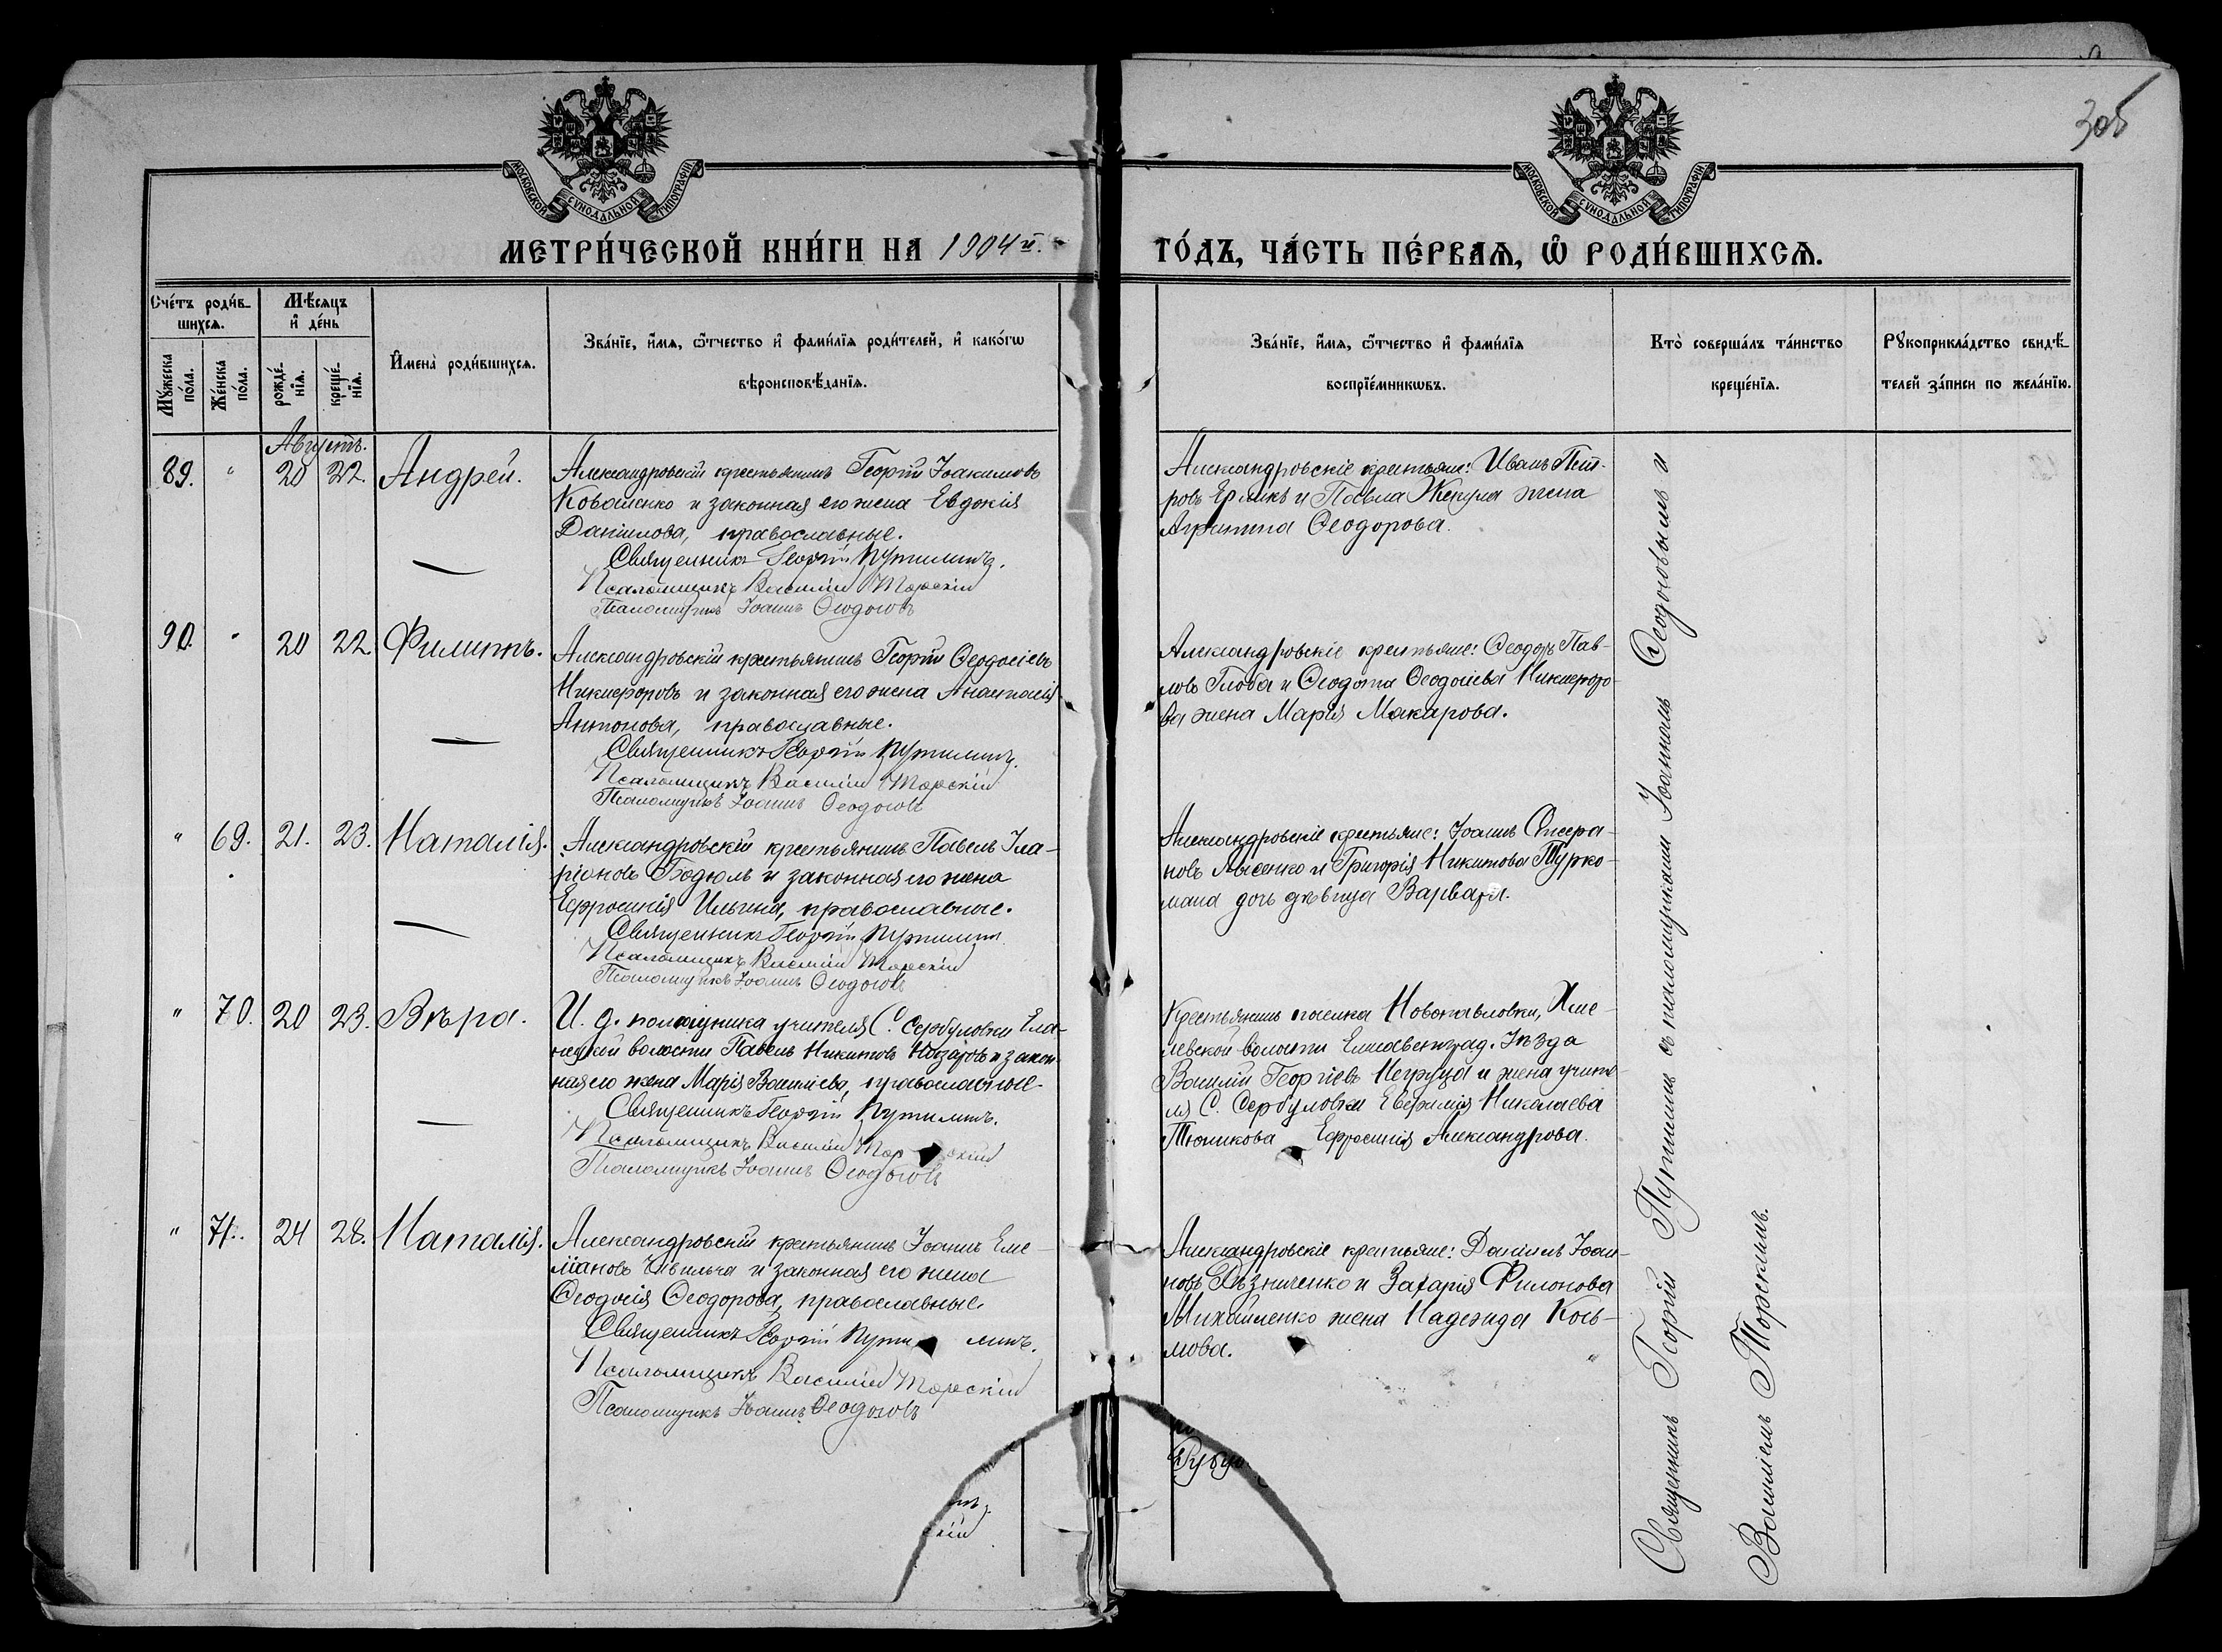 305
МОСКОВСКОЙ СѴНОДАЛЬНОЙ ТИПОГРАФІИ.
МОСКОВСКОЙ СѴНОДАЛЬНОЙ ТИПОГРАФІИ.
МЕТРИ́ЧЕСКОЙ КНИ́ГИ НА 1904 й.
ГО́ДЪ, ЧА́СТЬ ПЕ́РВАѦ, Ѽ РОДИ́ВШИХСѦ.
Сче́тъ роди́в-
шихсѧ.
Мꙋжеска по́ла.
Же́нска по́ла.
Мѣ́сѧцъ
и҆ де́нь
рожде́-
нїѧ.
креще́-
нїѧ.
И҆мена̀ роди́вшихсѧ.
Зва́нїе, и҆́мѧ, ѻ҆́тчество и҆ фами́лїѧ роди́телей, и҆ како́гѡ
вѣроисповѣ́данїѧ.
Зва́нїе, и҆́мѧ, ѻ҆́тчество и҆ фами́лїѧ
воспрїе́мникѡвъ.
Кто̀ соверша́лъ та́инство
креще́нїѧ.
Рꙋкоприкла́дство свидѣ́-
телей за́писи по жела́нїю.
Августъ.
89. " 20 22. Андрей.
Александровскій крестьянинъ Георгій Іоакимовъ
Коваленко и законная его жена Евдокія
Даніилова, православные.
Священникъ Георгій Путилинъ.
Псаломщикъ Василій Торскій
Псаломщикъ Іоаннъ Ѳеодосовъ
Александровскіе крестьяне: Иванъ Пет-
ровъ Ермакъ и Павла Жекула жена
Агрипина Ѳеодорова.
90. " 20 22. Филиппъ.
Александровскій крестьянинъ Георгій Ѳеодосіевъ
Никифоровъ и законная его жена Анастасія
Антонова, православные.
Священникъ Георгій Путилинъ.
Псаломщикъ Василій Торскій
Псаломщикъ Іоаннъ Ѳеодосовъ
Александровскіе крестьяне: Ѳеодоръ Пав-
ловъ Глоба и Ѳеодота Ѳеодосіева Никифоро-
ва жена Марія Макарова.
" 69. 21. 23. Наталія.
Александровскій крестьянинъ Павелъ Ила-
ріоновъ Бодюль и законная его жена
Ефросинія Ильина, православные.
Священникъ Георгій Путилинъ
Псаломщикъ Василій Торскій
Псаломщикъ Іоаннъ Ѳеодосовъ
Александровскіе крестьяне: Іоаннъ
новъ Лысенко и Григорія Никитова Турко-
мана дочь дѣвица Варвара.
" 70. 20 23. Вѣра.
И. д. помощника учителя С. Сербуловки Ела-
нецкой волости Павелъ Никитовъ Назаровъ и закон-
ная его жена Марія Василіева, православные.
Священникъ Георгій Путилинъ.
Псаломщикъ Василій Торскій
Псаломщикъ Іоаннъ Ѳеодосовъ
Крестьянинъ поселка Новопавловки,
левской волости Елисаветград. Уѣзда
Василій Георгіевъ Негруца и жена учите-
ля С. Сербуловки Евфимія Николаева
Тюникова Ефросинія Александрова.
" 71. 24 28. Наталія.
Александровскій крестьянинъ Іоаннъ Еме-
ліановъ и законная его жена
Ѳеодосія Ѳеодорова, православные.
Священникъ Георгій Путилинъ.
Псаломщикъ Василій Торскій
Псаломщикъ Іоаннъ Ѳеодосовъ
Александровскіе крестьяне: Даніилъ Іоан-
новъ Рѣзниченко и Захарія Филонова
Михайленко жена Надежда Кось-
мова.
Священникъ Георгій Путилинъ съ псаломщиками Іоанномъ Ѳеодосовымъ и
Василіемъ Торскимъ.
скій